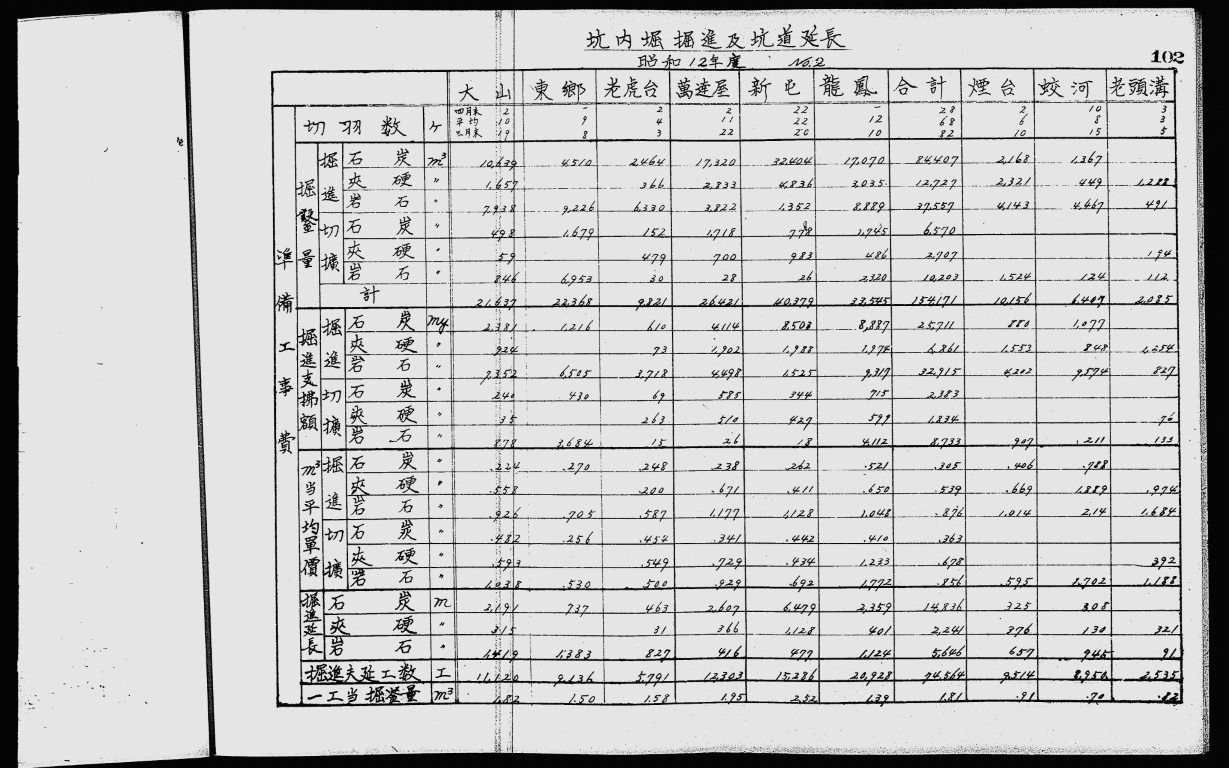 坑内堀掘進及坑道延長
昭和12年度 No.2
102
大山 東鄉 老虎台 萬達屋 新屯 龍鳳 合計 煙台 蛟河 老頭溝
切羽数 ヶ 四月末 2 - 2 2 22 - 28 2 10 3
平均 10 9 4 11 22 12 68 6 8 3
三月末 19 8 3 22 20 10 82 10 15 5
準備工事費
掘鑿量 掘進 石炭 m³ 10,639 4,510 2,464 17,320 32,404 17,070 84,407 2,168 1,367
夾硬 〃 1,657 366 2,833 4,836 3,035 12,727 2,321 449 1,288
岩石 〃 7,938 9,226 6,330 3,822 1,352 8,889 37,557 4,143 4,467 491
切擴 石炭 〃 498 1,679 152 1,718 778 1,745 6,570
夾硬 〃 59 479 700 983 486 2,707 194
岩石 〃 846 6,953 30 28 26 2,320 10,203 1,524 124 112
計 21,637 22,368 9,821 26,421 40,379 33,545 154,171 10,156 6,407 2,085
掘進支拂額 掘進 石炭 2,381 1,216 610 4,114 8,503 8,887 25,711 880 1,077
夾硬 〃 924 73 1,902 1,988 1,974 6,861 1,553 848 1,254
岩石 〃 7,352 6,505 3,718 4,498 1,525 9,317 32,915 4,202 9,574 827
切擴 石炭 〃 240 430 69 585 344 715 2,383
夾硬 〃 35 263 510 427 599 1,834 76
岩石 〃 878 3,684 15 26 18 4,112 8,733 907 211 133
m³当平均單價 掘進 石炭 〃 .224 .270 .248 .238 .262 .521 .305 .406 .788
夾硬 〃 .558 .200 .671 .411 .650 .539 .669 1.889 .974
岩石 〃 .926 .705 .587 1.177 1.128 1.048 .876 1.014 2.14 1.684
切擴 石炭 〃 .482 .256 .454 .341 .442 .410 .363
夾硬 〃 .593 .549 .729 .434 1.233 .678 .392
岩石 〃 1.038 .530 .500 .929 .692 1.772 .856 .595 1.702 1.188
掘進延長 石炭 m 2,191 737 463 2,607 6,479 2,359 14,836 325 308
夾硬 〃 315 31 366 1,128 401 2,241 376 130 321
岩石 〃 1,419 1,383 827 416 477 1,124 5,646 657 745 91
掘進夫延工数 工 11,120 9,136 5,791 12,303 15,286 20,928 74,564 9,514 8,950 2,535
一工当掘鑿量 m³ 1.82 1.50 1.58 1.95 2.52 1.39 1.81 .91 .70 .82